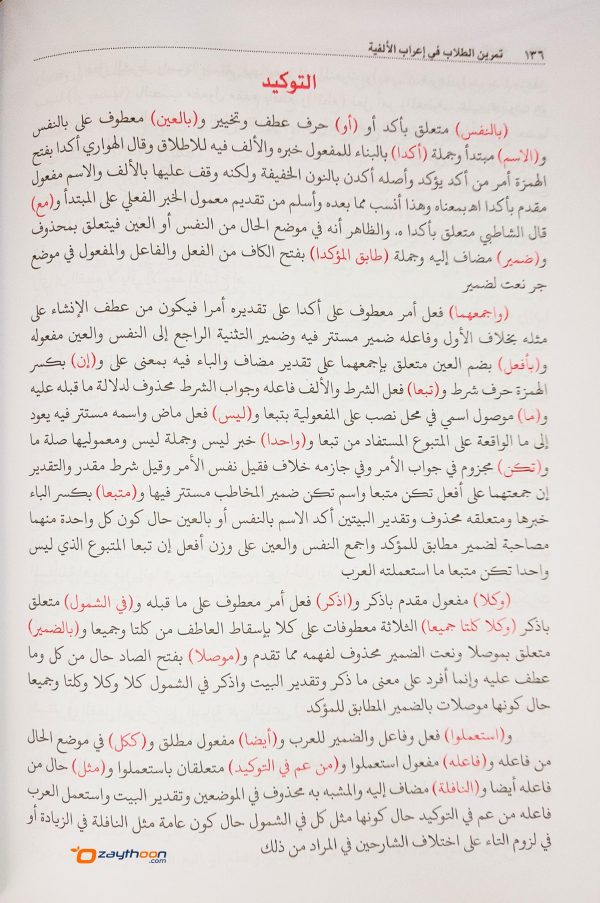 ١٣٦ تمرين الطلاب في إعراب الألفية
التوكيد
(بالنفس) متعلق بأكد أو (أو) حرف عطف وتخيير و(بالعين) معطوف على بالنفس
و(الاسم) مبتدأ وجملة (أكدا) بالبناء للمفعول خبره والألف فيه للاطلاق وقال الهواري أكدا بفتح
الهمزة أمر من أكد يؤكد وأصله أكدن بالنون الخفيفة ولكنه وقف عليها بالألف والاسم مفعول
مقدم بأكدا اه بمعناه وهذا أنسب مما بعده وأسلم من تقديم معمول الخبر الفعلي على المبتدأ و(مع)
قال الشاطبي متعلق بأكدا ه. والظاهر أنه في موضع الحال من النفس أو العين فيتعلق بمحذوف
و(ضمير) مضاف إليه وجملة (طابق المؤكدا) بفتح الكاف من الفعل والفاعل والمفعول في موضع
جر نعت لضمير
(واجمعهما) فعل أمر معطوف على أكدا على تقديره أمرا فيكون من عطف الإنشاء على
مثله بخلاف الأول وفاعله ضمير مستتر فيه وضمير التثنية الراجع إلى النفس والعين مفعوله
و(بأفعل) بضم العين متعلق بإجمعهما على تقدير مضاف والباء فيه بمعنى على و(إن) بكسر
الهمزة حرف شرط و(تبعا) فعل الشرط والألف فاعله وجواب الشرط محذوف لدلالة ما قبله عليه
و(ما) موصول اسمي في محل نصب على المفعولية بتبعا و(ليس) فعل ماض واسمه مستتر فيه يعود
إلى ما الواقعة على المتبوع المستفاد من تبعا و(واحدا) خبر ليس وجملة ليس ومعموليها صلة ما
و(تكن) مجزوم في جواب الأمر وفي جازمه خلاف فقيل نفس الأمر وقيل شرط مقدر والتقدير
إن جمعتهما على أفعل تكن متبعا واسم تكن ضمير المخاطب مستتر فيها و(متبعا) بكسر الباء
خبرها ومتعلقه محذوف وتقدير البيتين أكد الاسم بالنفس أو بالعين حال كون كل واحدة منهما
مصاحبة لضمير مطابق للمؤكد واجمع النفس والعين على وزن أفعل إن تبعا المتبوع الذي ليس
واحدا تكن متبعا ما استعملته العرب
(وكلا) مفعول مقدم باذكر و(اذكر) فعل أمر معطوف على ما قبله و(في الشمول) متعلق
باذكر (وكلا كلتا جميعا) الثلاثة معطوفات على كلا بإسقاط العاطف من كلتا وجميعا و(بالضمير)
متعلق بموصلا ونعت الضمير محذوف لفهمه مما تقدم و(موصلا) بفتح الصاد حال من كل وما
عطف عليه وإنما أفرد على معنى ما ذكر وتقدير البيت واذكر في الشمول كلا وكلا وكلتا وجميعا
حال كونها موصلات بالضمير المطابق للمؤكد
و(استعملوا) فعل وفاعل والضمير للعرب و(أيضا) مفعول مطلق و(ككل) في موضع الحال
من فاعله و(فاعله) مفعول استعملوا و(من عم في التوكيد) متعلقان باستعملوا و(مثل) حال من
فاعله أيضا و(النافلة) مضاف إليه والمشبه به محذوف في الموضعين وتقدير البيت واستعمل العرب
فاعله من عم في التوكيد حال كونها مثل كل في الشمول حال كون عامة مثل النافلة في الزيادة أو
في لزوم التاء على اختلاف الشارحين في المراد من ذلك
zaythoon
.com